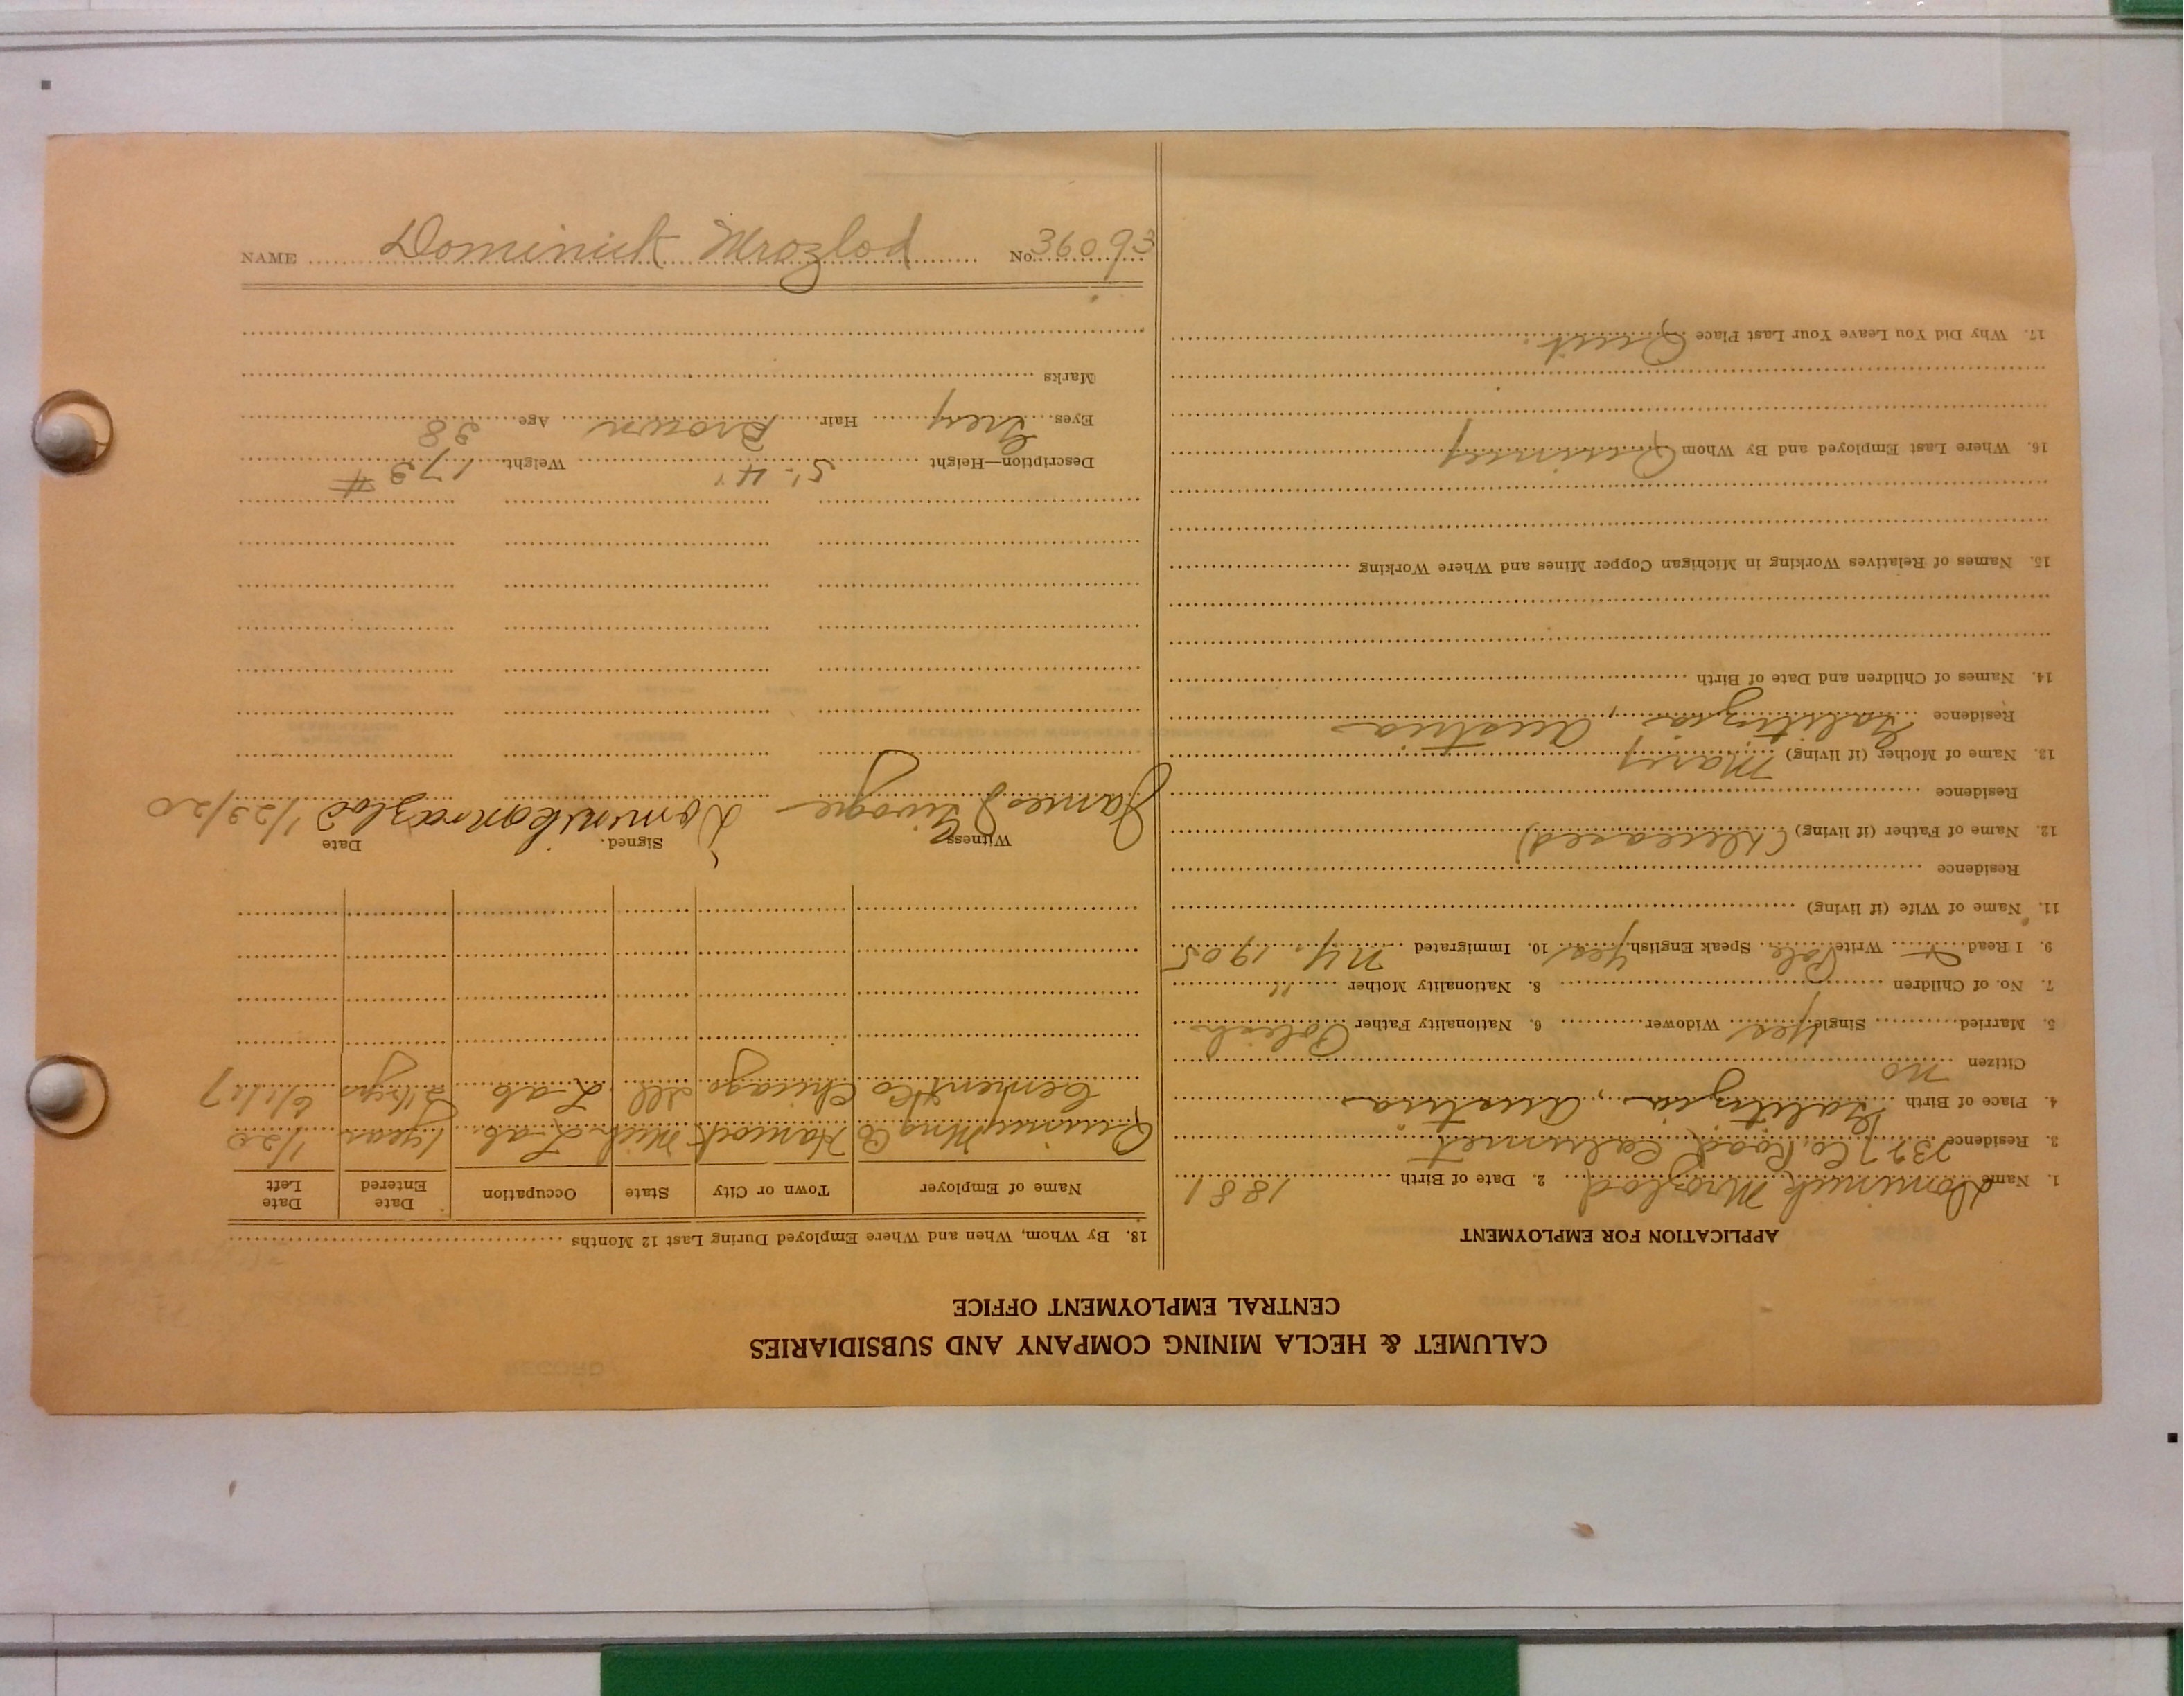 CALUMET & HECLA MINING COMPANY AND SUBSIDIARIES
CENTRAL EMPLOYMENT OFFICE
APPLICATION FOR EMPLOYMENT
1. Name Dominick Mrozlod 2. Date of Birth 1881
3. Residence 2327 Co Road Calumet
4. Place of Birth Galitzia, Austria
Citizen no
5. Married Single Yes Widower 6. Nationality Father Polish
7. No. of Children 8. Nationality Mother "
9. I Read Write Pole Speak English Yes 10. Immigrated N.Y. 1905
11. Name of Wife (if living)
Residence
12. Name of Father (if living) (Deceased)
Residence
13. Name of Mother (if living) Mary
Residence Galitzia, Austria
14. Names of Children and Date of Birth
15. Names of Relatives Working in Michigan Copper Mines and Where Working
16. Where Last Employed and By Whom Quincy
17. Why Did You Leave Your Last Place Quit.
18. By Whom, When and Where Employed During Last 12 Months
Name of Employer Town or City State Occupation Date Entered Date Left
Quincy Mng Co Hancock Mich Lab. 1 year 1/20
Cement Co Chicago Ill Lab. yrs 6/1/17
Witness Signed. Date
James 1/23/20
Description—Height 5' 4" Weight 173 #
Eyes Grey Hair Brown Age 38
Marks
NAME Dominick Mrozlod No. 36093
RECORD